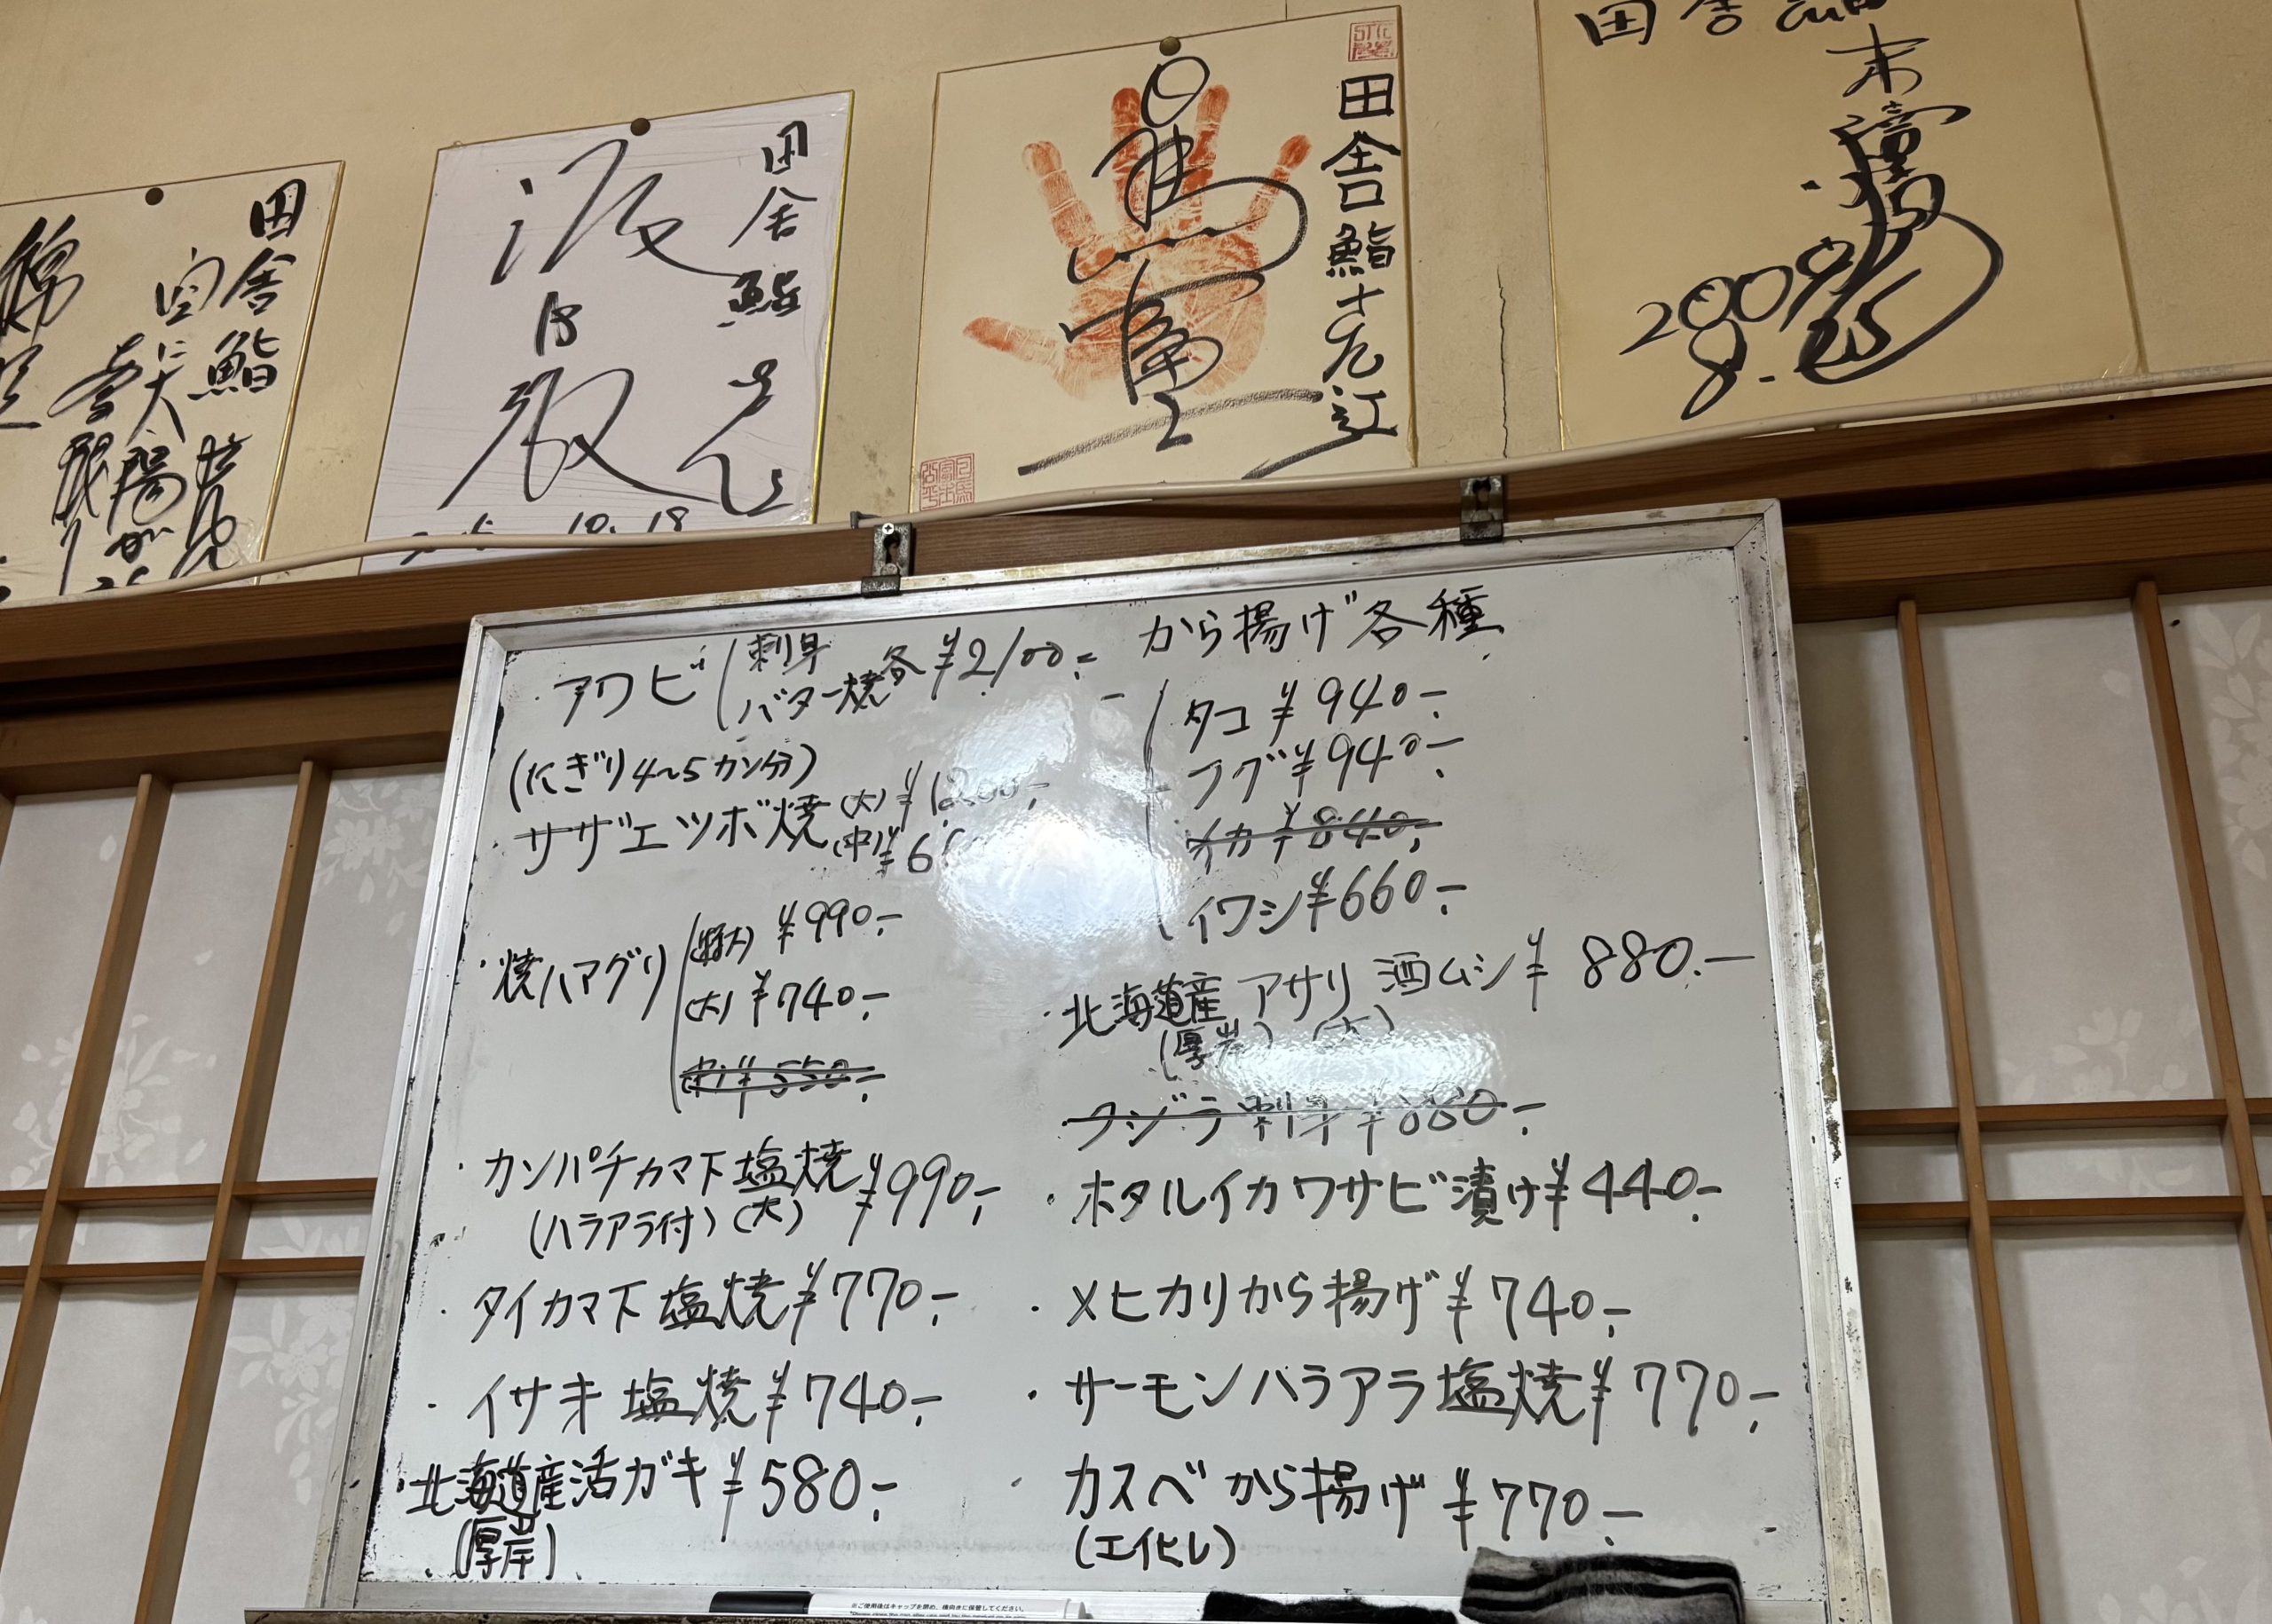 田舎鮨
田舎鮨
10.18
田舎鮨さん江
田舎
2009
8.25
・アワビ(刺身
バター焼 各¥2100.-
(にぎり4~5カン分)
・サザエツボ焼(大)¥1,200.-
(中)¥6
・焼ハマグリ(特大)¥990.-
(大)¥740.-
(中)¥550.-
・カンパチカマ下塩焼¥990.-
(ハラアラ付)(大)
・タイカマ下塩焼¥770.-
・イサキ塩焼¥740.-
・北海道産活ガキ¥580.-
(厚岸)
から揚げ各種
タコ¥940.-
フグ¥940.-
イカ¥840.-
イワシ¥660.-
・北海道産アサリ酒ムシ¥880.-
(厚岸)(大)
クジラ刺身¥880.-
・ホタルイカワサビ漬け¥440.-
・メヒカリから揚げ¥740.-
・サーモンハラアラ塩焼¥770.-
・カスベから揚げ¥770.-
(エイヒレ)
※ご使用後はキャップを閉め、横向きに保管してください。